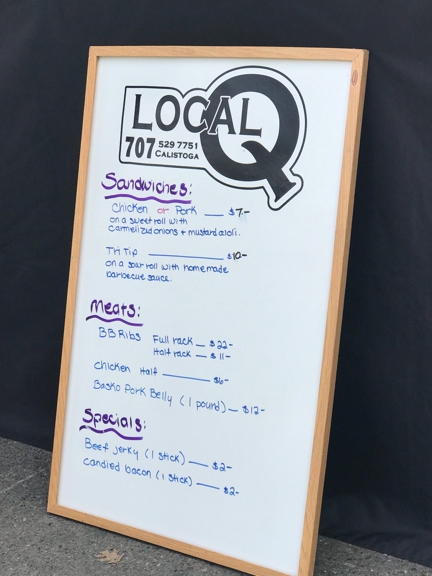 LOCAL Q
707 529 7751
CALISTOGA
Sandwiches:
Chicken or Pork — $7.-
on a sweet roll with
carmelized onions + mustard aioli.
Tri Tip — $10.-
on a sour roll with homemade
barbecue sauce.
Meats:
BB Ribs Full rack — $22-
Half rack — $11-
Chicken Half — $6-
Basko Pork Belly (1 pound) — $12-
Specials:
Beef jerky (1 stick) — $2-
candied bacon (1 stick) — $2-